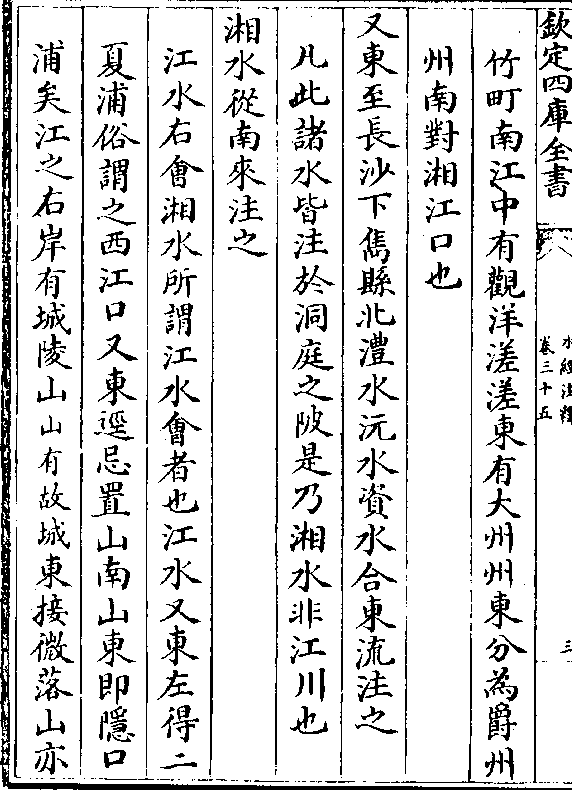 欽定四庫全書
水經注釋
卷三十五
三
竹町南江中有觀洋溠溠東有大州州東分為爵州
州南對湘江口也
又東至長沙下雋縣北澧水沅水資水合東流注之
凡此諸水皆注於洞庭之陂是乃湘水非江川也
湘水從南來注之
江水右會湘水所謂江水會者也江水又東左得二
夏浦俗謂之西江口又東逕忌置山南山東即隱口
浦矣江之右岸有城陵山山有故城東接微落山亦